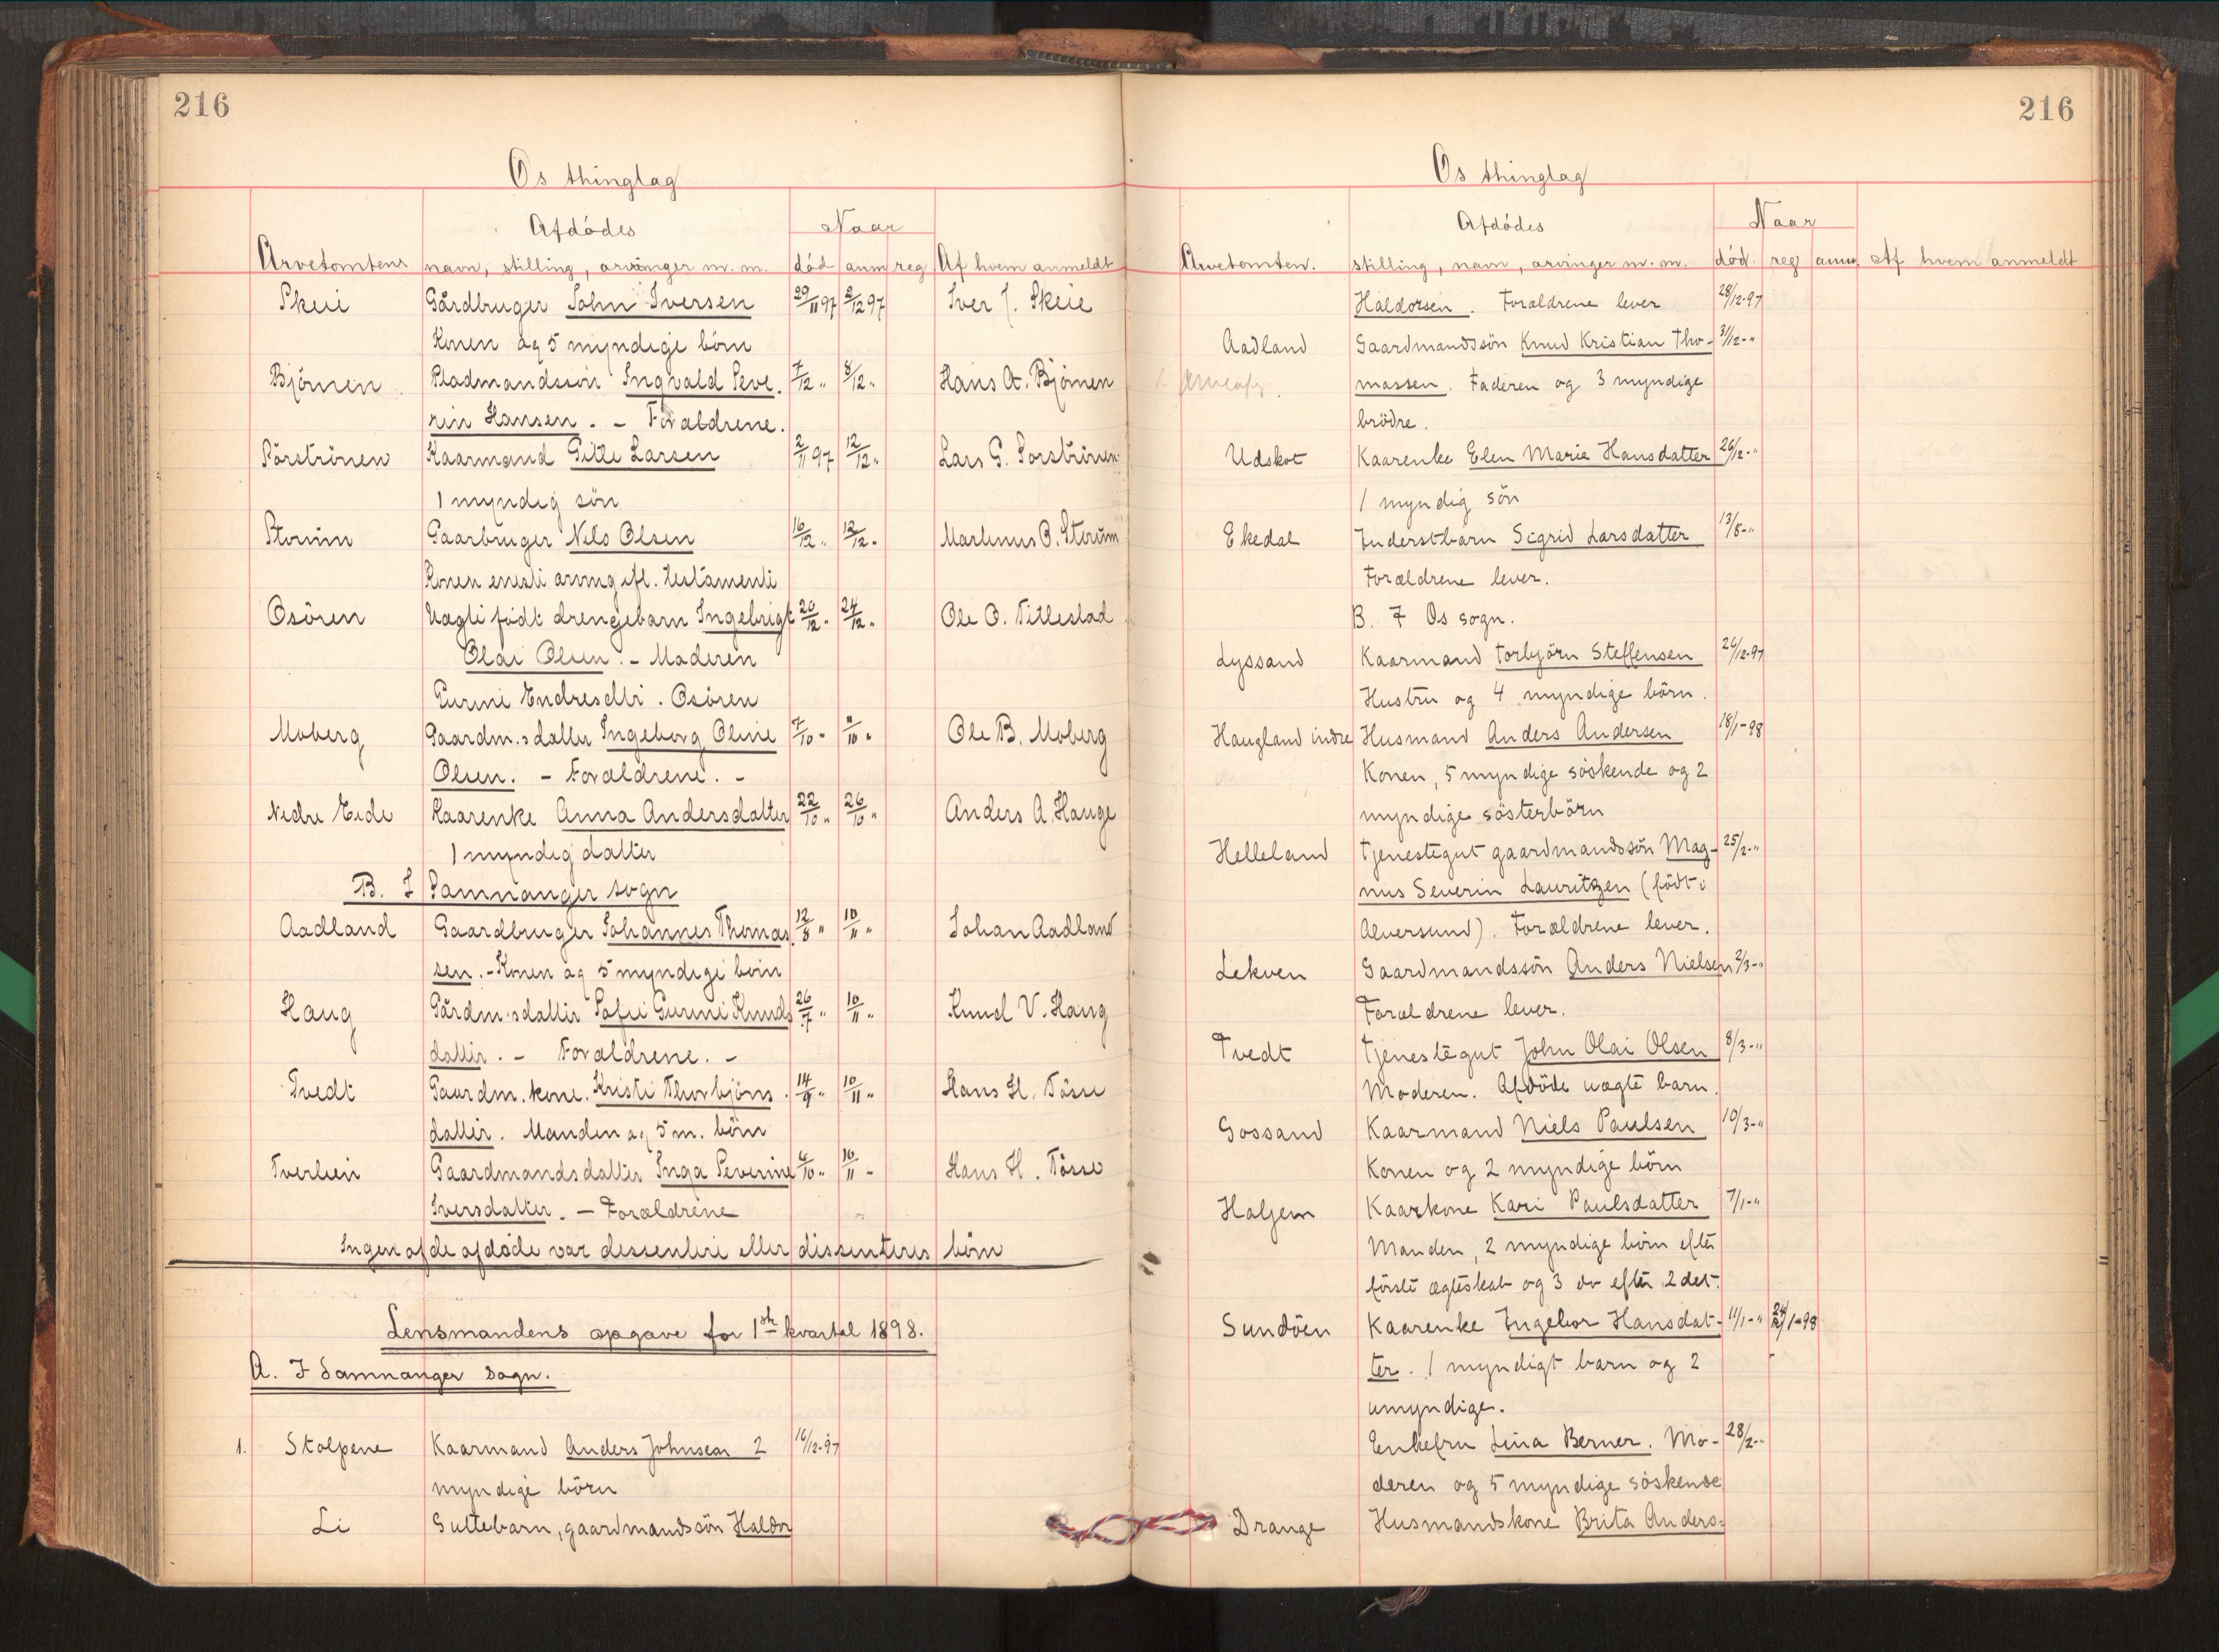 216
Os thinglag
Afdödes Naar
Arvetomtens navn, stilling, arvinger m. m. död anm reg Af hvem anmeldt
Skeie Gårdbruger John Iversen 29/11 97 2/12 97 Iver J. Skeie
Konen og 5 myndige börn
Björnen Pladmandssön Ingvald Seve. 7/12 " 8/12 " Hans A. Björnen
rin Hansen. - Forældrene.
Porströnen Kaarmand Gitle Larsen 2/11 97 12/12 " Lars G. Porströnen
1 myndig sön
Storum Gaarbruger Nils Olsen 16/12 " 12/12 " Martinus O. Storum
Konen eneste arving efl. testamente
Osören Uægte födt drengebarn Ingebrigt 20/12 " 24/12 " Ole O. Tillestad
Olai Olsen. - Moderen
Gurine Endresdtr. Osören
Moberg Gaardm.sdatter Ingeborg Oline 7/10 " 11/10 " Ole B. Moberg
Olsen. - Forældrene. -
Nedre Eide Kaarenke Anna Andersdatter 22/10 " 26/10 " Anders A. Hauge
1 myndig datter
B. I Samnanger sogn
Aadland Gaardbruger Johannes Thomas 12/8 " 10/11 " Johan Aadland
sen. - Konen og 5 myndige börn
Haug Gårdm.sdatter Sofie Gurine Knuds 26/7 " 10/11 " Knud V. Haug
datter. - Forældrene. -
Tvedt Gaardm. kone. Kristi Thorbjörns. 14/9 " 10/11 " Hans H. Tösse
datter. Manden og 5 m. börn
Tverlien Gaardmandsdatter Inga Severine 4/10 " 10/11 " Hans H. Tösse
Iversdatter. - Forældrene
Ingen af de afdöde var dissentere eller dissenteres börn
Lensmandens opgave for 1ste kvartal 1898.
A. I Samnanger sogn.
1. Stolpene Kaarmand Anders Johnsen 2 16/12-97
myndige börn
Li Guttebarn, gaardmandssön Haldor
216
Os thinglag
Afdödes Naar
Arvetomten. stilling, navn, arvinger m. m. död. reg anm. Af hvem anmeldt
Haldorsen. Forældrene lever 28/12-97
Aadland Gaardmandssön Knud Kristian Tho- 31/12-"
massen. Faderen og 3 myndige
brödre.
Udskot Kaarenke Elen Marie Hansdatter 26/12-"
1 myndig sön
Ekedal Inderstbarn Sigrid Larsdatter 13/8-"
Forældrene lever.
B. I Os sogn.
Lyssand Kaarmand Torbjörn Steffensen 26/12-97
Hustru og 4 myndige börn.
Haugland indre Husmand Anders Andersen 18/1-98
Konen, 5 myndige söskende og 2
myndige sösterbörn
Helleland Tjenestegut gaardmandssön Mag- 25/2-"
nus Severin Lauritzen (födt i
Alversund). Forældrene lever.
Lekven Gaardmandssön Anders Nielsen 2/3-"
Forældrene lever.
Tvedt Tjenestegut John Olai Olsen 8/3-"
Moderen. Afdöde uægte barn.
Gossand Kaarmand Niels Paulsen 10/3-"
Konen og 2 myndige börn
Haljem Kaarkone Kari Paulsdatter 7/1-"
Manden, 2 myndige börn efter
förste ægteskab og 3 do efter 2det.
Sundöen Kaarenke Ingebor Hansdat- 11/1-" 24/1-98
ter. 1 myndigt barn og 2
umyndige.
Enkefru Lina Berner. Mo- 28/2-"
deren og 5 myndige söskende
Drange Husmandskone Brita Anders-